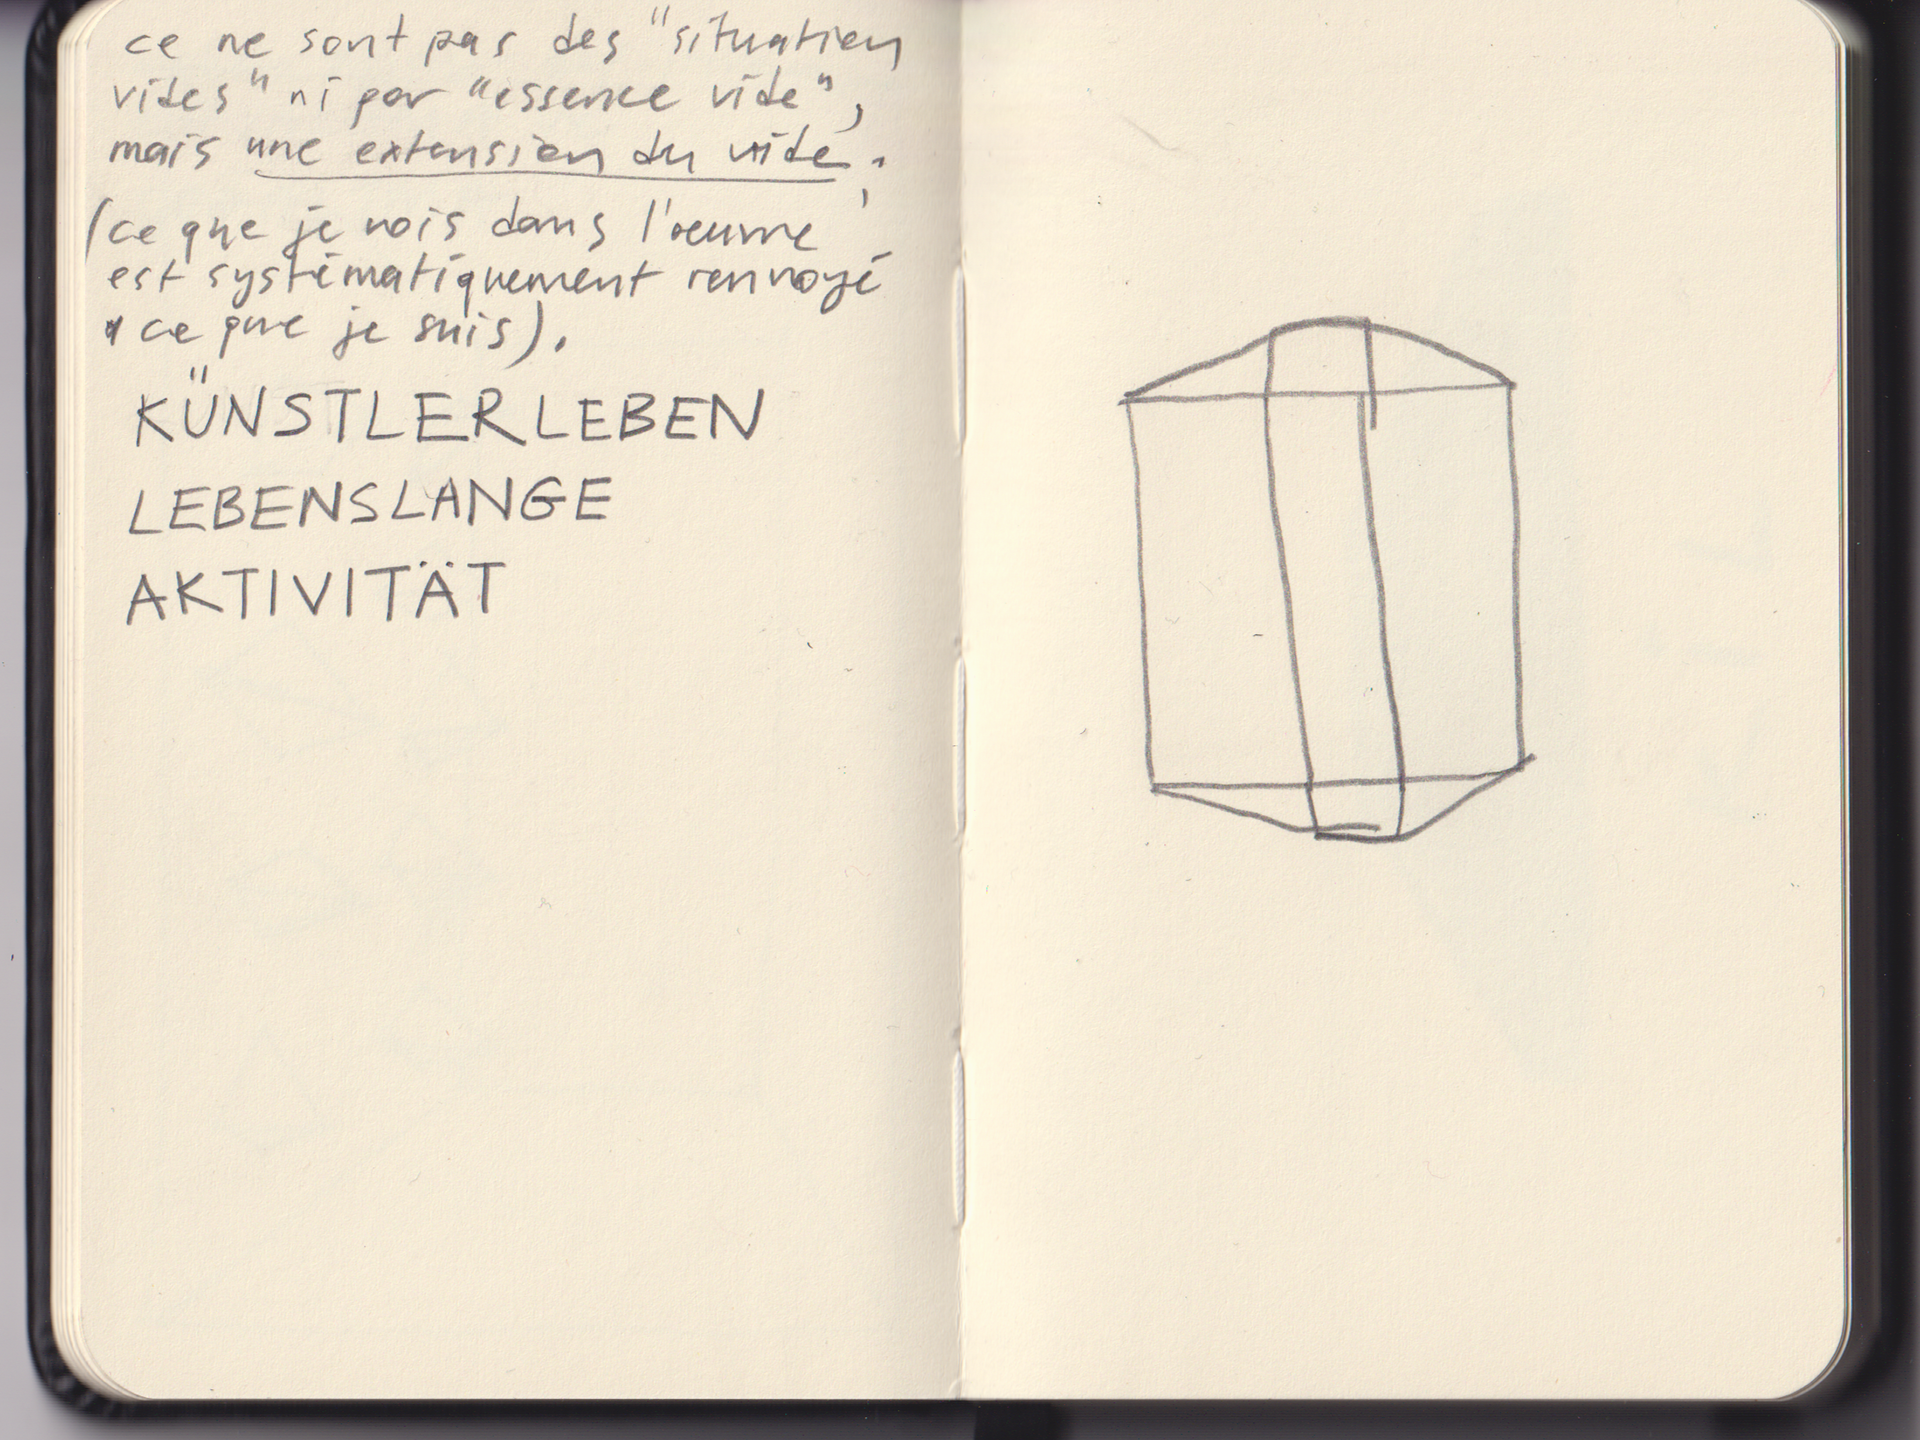 ce ne sont pas des "situation
vides" ni par "essence vide",
mais une extension du vide.
(ce que je vois dans l'oeuvre
est systématiquement renvoyé
à ce que je suis).
KÜNSTLERLEBEN
LEBENSLANGE
AKTIVITÄT